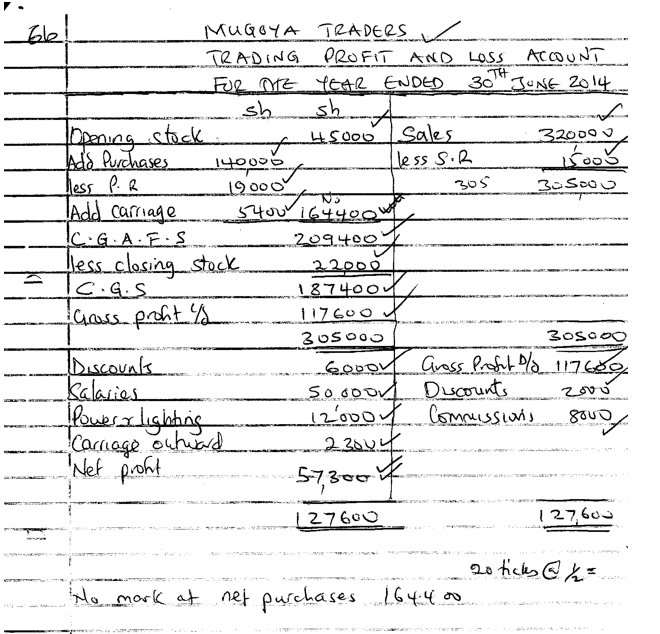 6b MUGOYA TRADERS
TRADING PROFIT AND LOSS ACCOUNT
FOR THE YEAR ENDED 30TH JUNE 2014
sh sh
Opening stock 45000 Sales 320000
Add Purchases 140000 less S.R 15000
less P.R 19,000 305 305000
Add carriage 5400 No 164400
C.G.A.F.S 209400
less closing stock 22000
= C.G.S 187400
Gross profit c/d 117600
305000 305000
Discounts 6000 Gross Profit b/d 117600
Salaries 50000 Discounts 2000
Power & lighting 12000 Commissions 8000
Carriage outward 2300
Net profit 57,300
127600 127,600
20 ticks @ 1/2 =
No mark at net purchases 164400